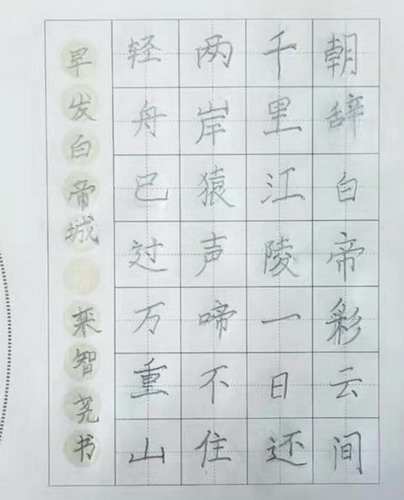 朝辞白帝彩云间
千里江陵一日还
两岸猿声啼不住
轻舟已过万重山
早发白帝城 栾智尧书